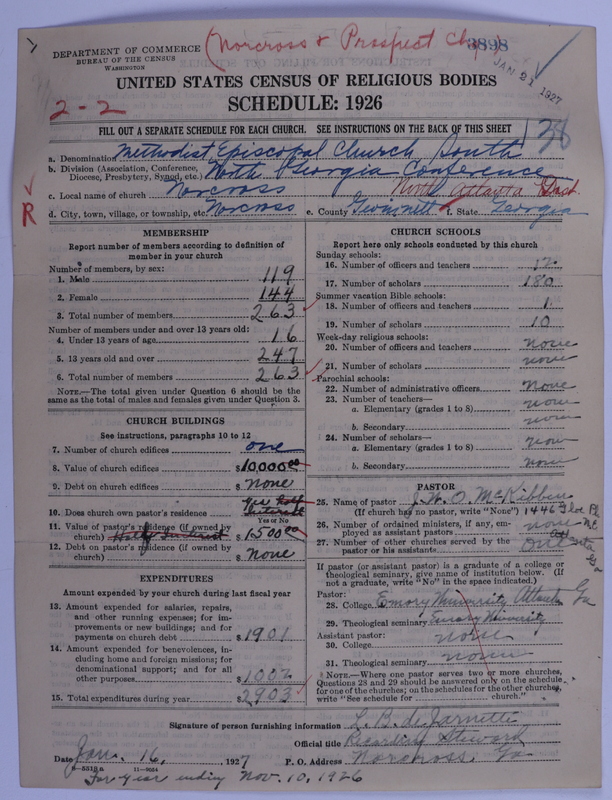 (Norcross & Prospect Chgs)
3898
JAN 21 1927
DEPARTMENT OF COMMERCE
BUREAU OF THE CENSUS
WASHINGTON
UNITED STATES CENSUS OF RELIGIOUS BODIES
2-2
SCHEDULE: 1926
FILL OUT A SEPARATE SCHEDULE FOR EACH CHURCH. SEE INSTRUCTIONS ON THE BACK OF THIS SHEET
38
a. Denomination Methodist Episcopal Church South
b. Division (Association, Conference, Diocese, Presbytery, Synod, etc.) North Georgia Conference
c. Local name of church Norcross North Atlanta Dist
R
d. City, town, village, or township, etc. Norcross e. County Gwinnett f. State Georgia
MEMBERSHIP
Report number of members according to definition of
member in your church
Number of members, by sex:
1. Male 119
2. Female 144
3. Total number of members 263
Number of members under and over 13 years old:
4. Under 13 years of age 16
5. 13 years old and over 247
6. Total number of members 263
NOTE.—The total given under Question 6 should be
same as the total of males and females given under Question 3.
CHURCH BUILDINGS
See instructions, paragraphs 10 to 12
7. Number of church edifices one
8. Value of church edifices $10,000.00
9. Debt on church edifices $ None
10. Does church own pastor's residence yes half Interest
Yes or No
11. Value of pastor's residence (if owned by
church) Half Interest $1500.00
12. Debt on pastor's residence (if owned by
church) $ None
EXPENDITURES
Amount expended by your church during last fiscal year
13. Amount expended for salaries, repairs,
and other running expenses; for im-
provements or new buildings; and for
payments on church debt $1901
14. Amount expended for benevolences, in-
cluding home and foreign missions; for
denominational support; and for all
other purposes $1002
15. Total expenditures during year $2903
CHURCH SCHOOLS
Report here only schools conducted by this church
Sunday schools:
16. Number of officers and teachers 12
17. Number of scholars 180
Summer vacation Bible schools:
18. Number of officers and teachers 1
19. Number of scholars 10
Week-day religious schools:
20. Number of officers and teachers none
21. Number of scholars none
Parochial schools:
22. Number of administrative officers None
23. Number of teachers—
a. Elementary (grades 1 to 8) none
b. Secondary none
24. Number of scholars—
a. Elementary (grades 1 to 8) none
b. Secondary none
PASTOR
25. Name of pastor J. W. O. McKibben
(If church has no pastor, write "None") 1446
26. Number of ordained ministers, if any, em-
ployed as assistant pastors none N.E.
27. Number of other churches served by the
pastor or his assistants One
If pastor (or assistant pastor) is a graduate of a college or
theological seminary, give name of institution below. (If
not a graduate, write "No" in the space indicated.)
Pastor:
28. College Emory University Atlanta Ga
29. Theological seminary Emory University
Assistant pastor:
30. College none
31. Theological seminary none
NOTE.—Where one pastor serves two or more churches,
Questions 28 and 29 should be answered only on the schedule
for one of the churches; on the schedules for the other churches,
write "See schedule for church."
Signature of person furnishing information L. B. deJarnette
Official title Recording Steward
Date Jan. 16, 1927 P. O. Address Norcross, Ga
11—9024
For year ending Nov. 10, 1926